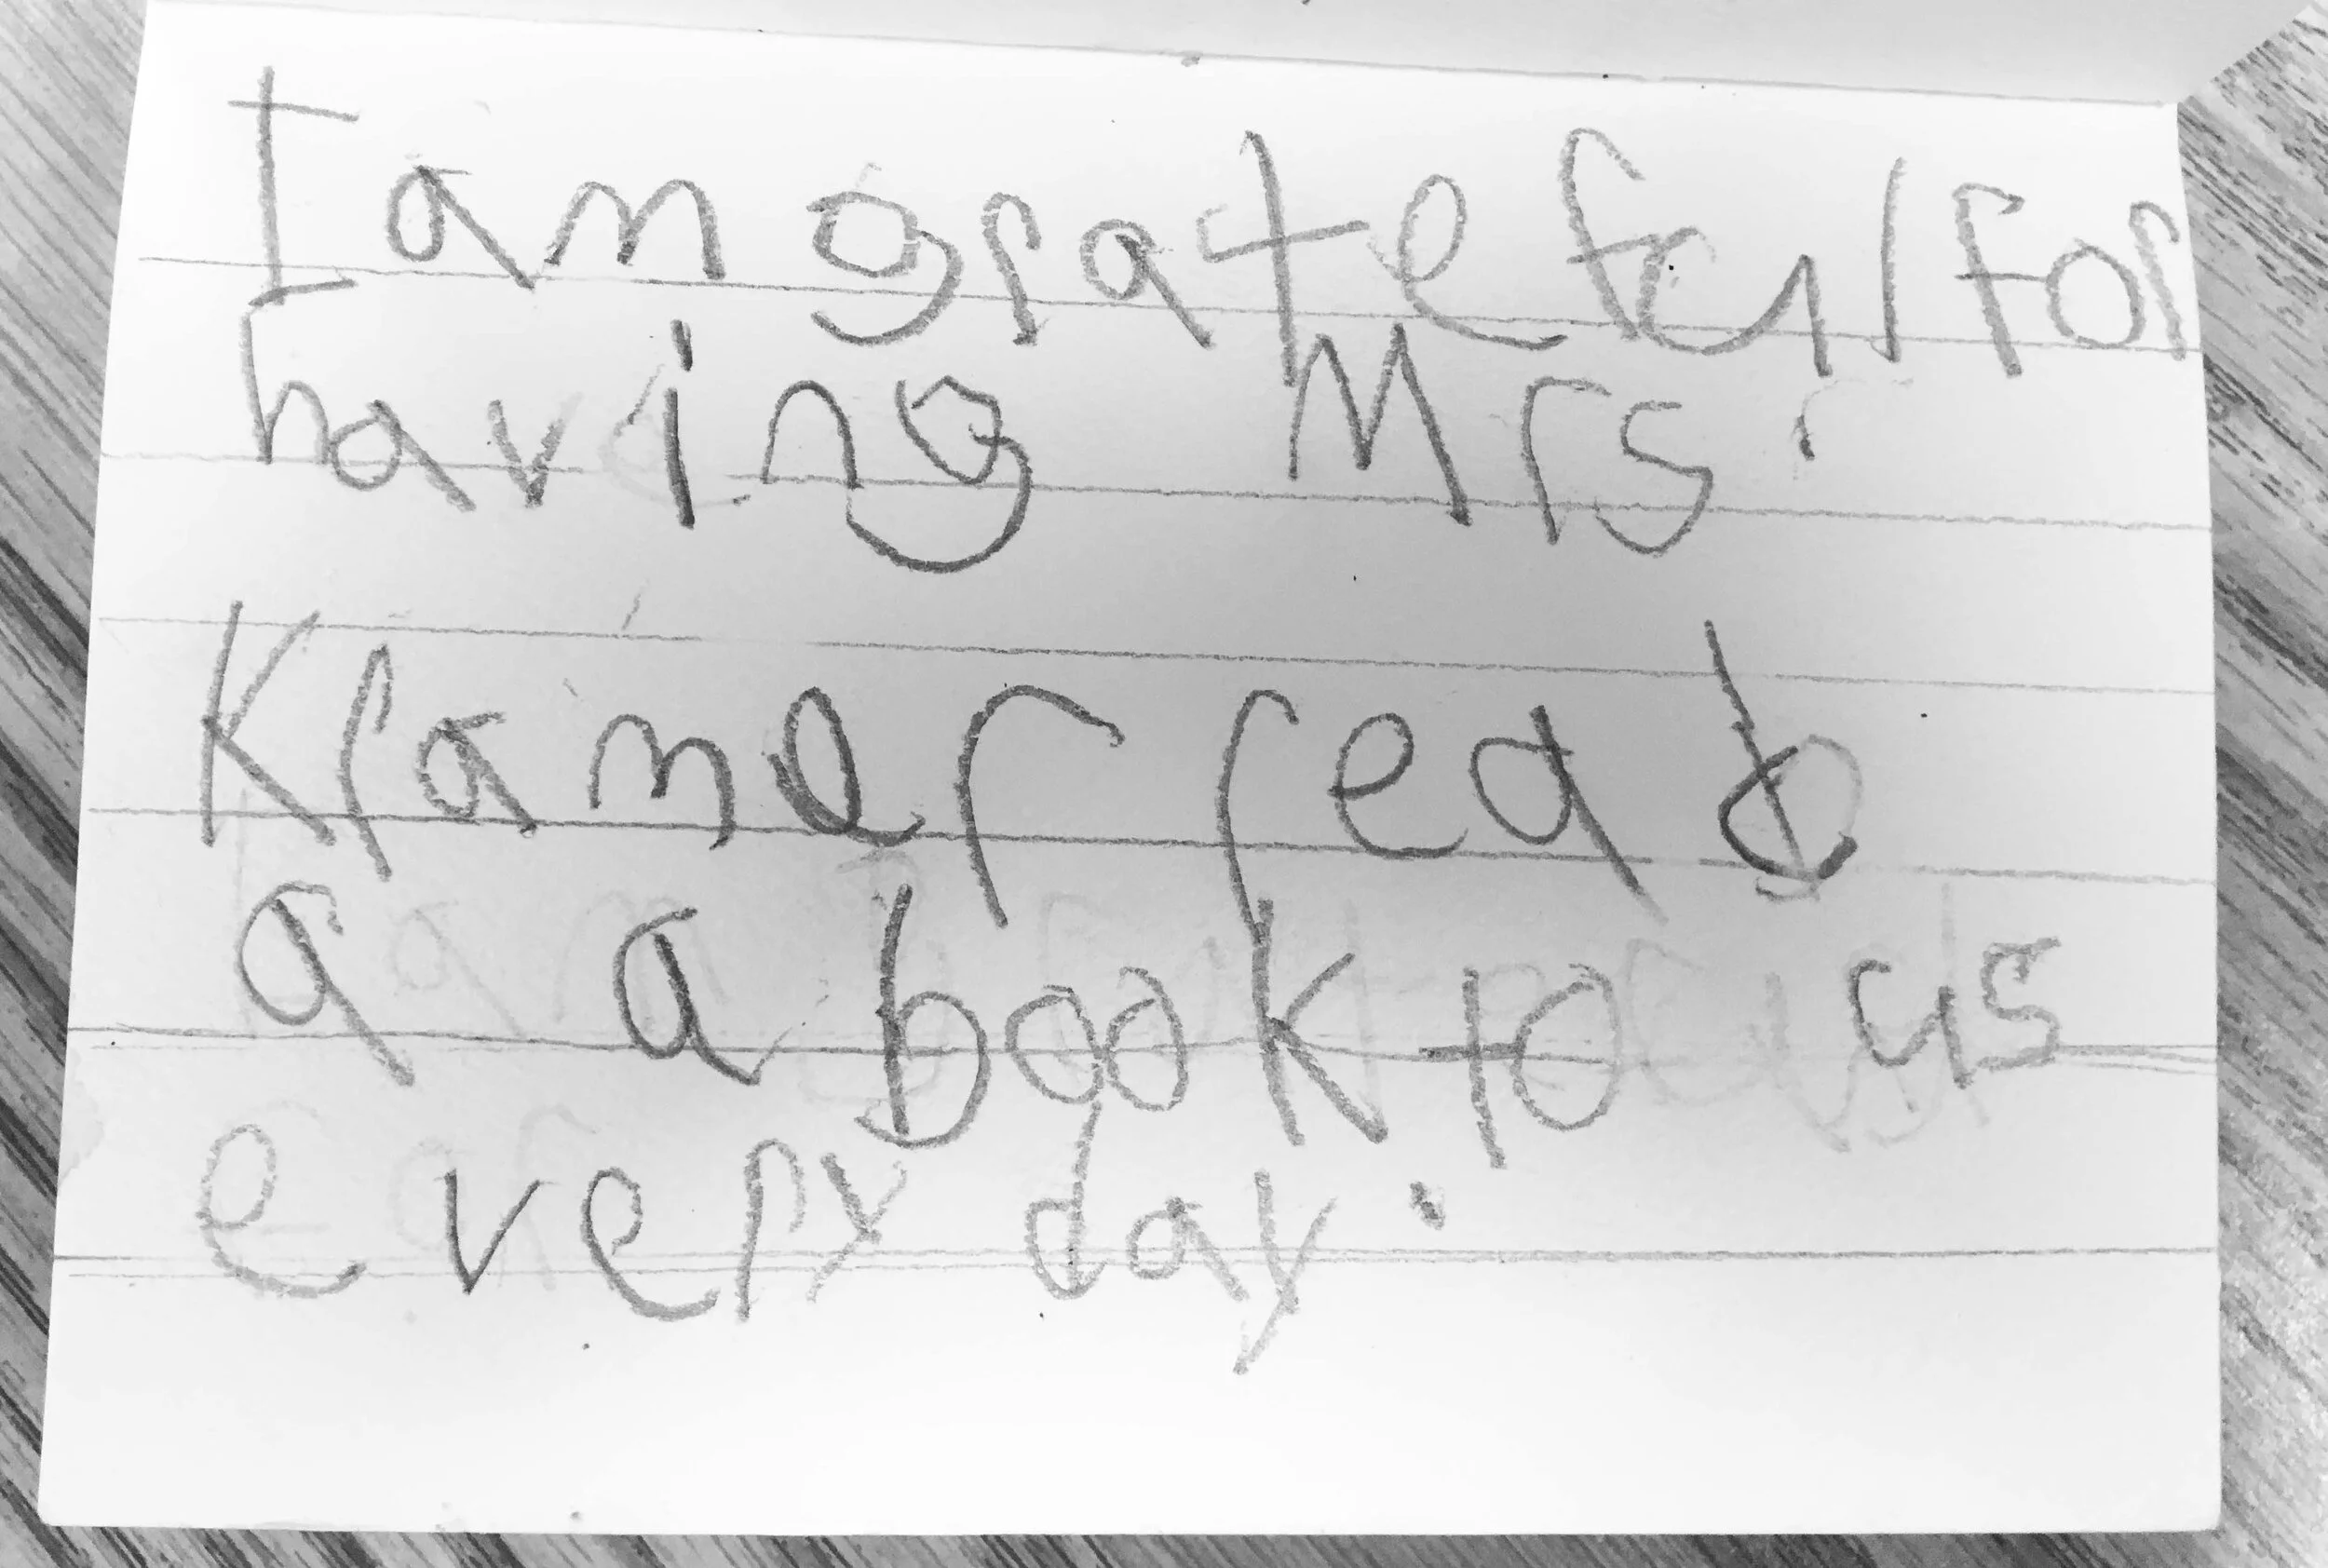 I am grateful for
having Mrs.
Kramer read
a a book to us
every day.